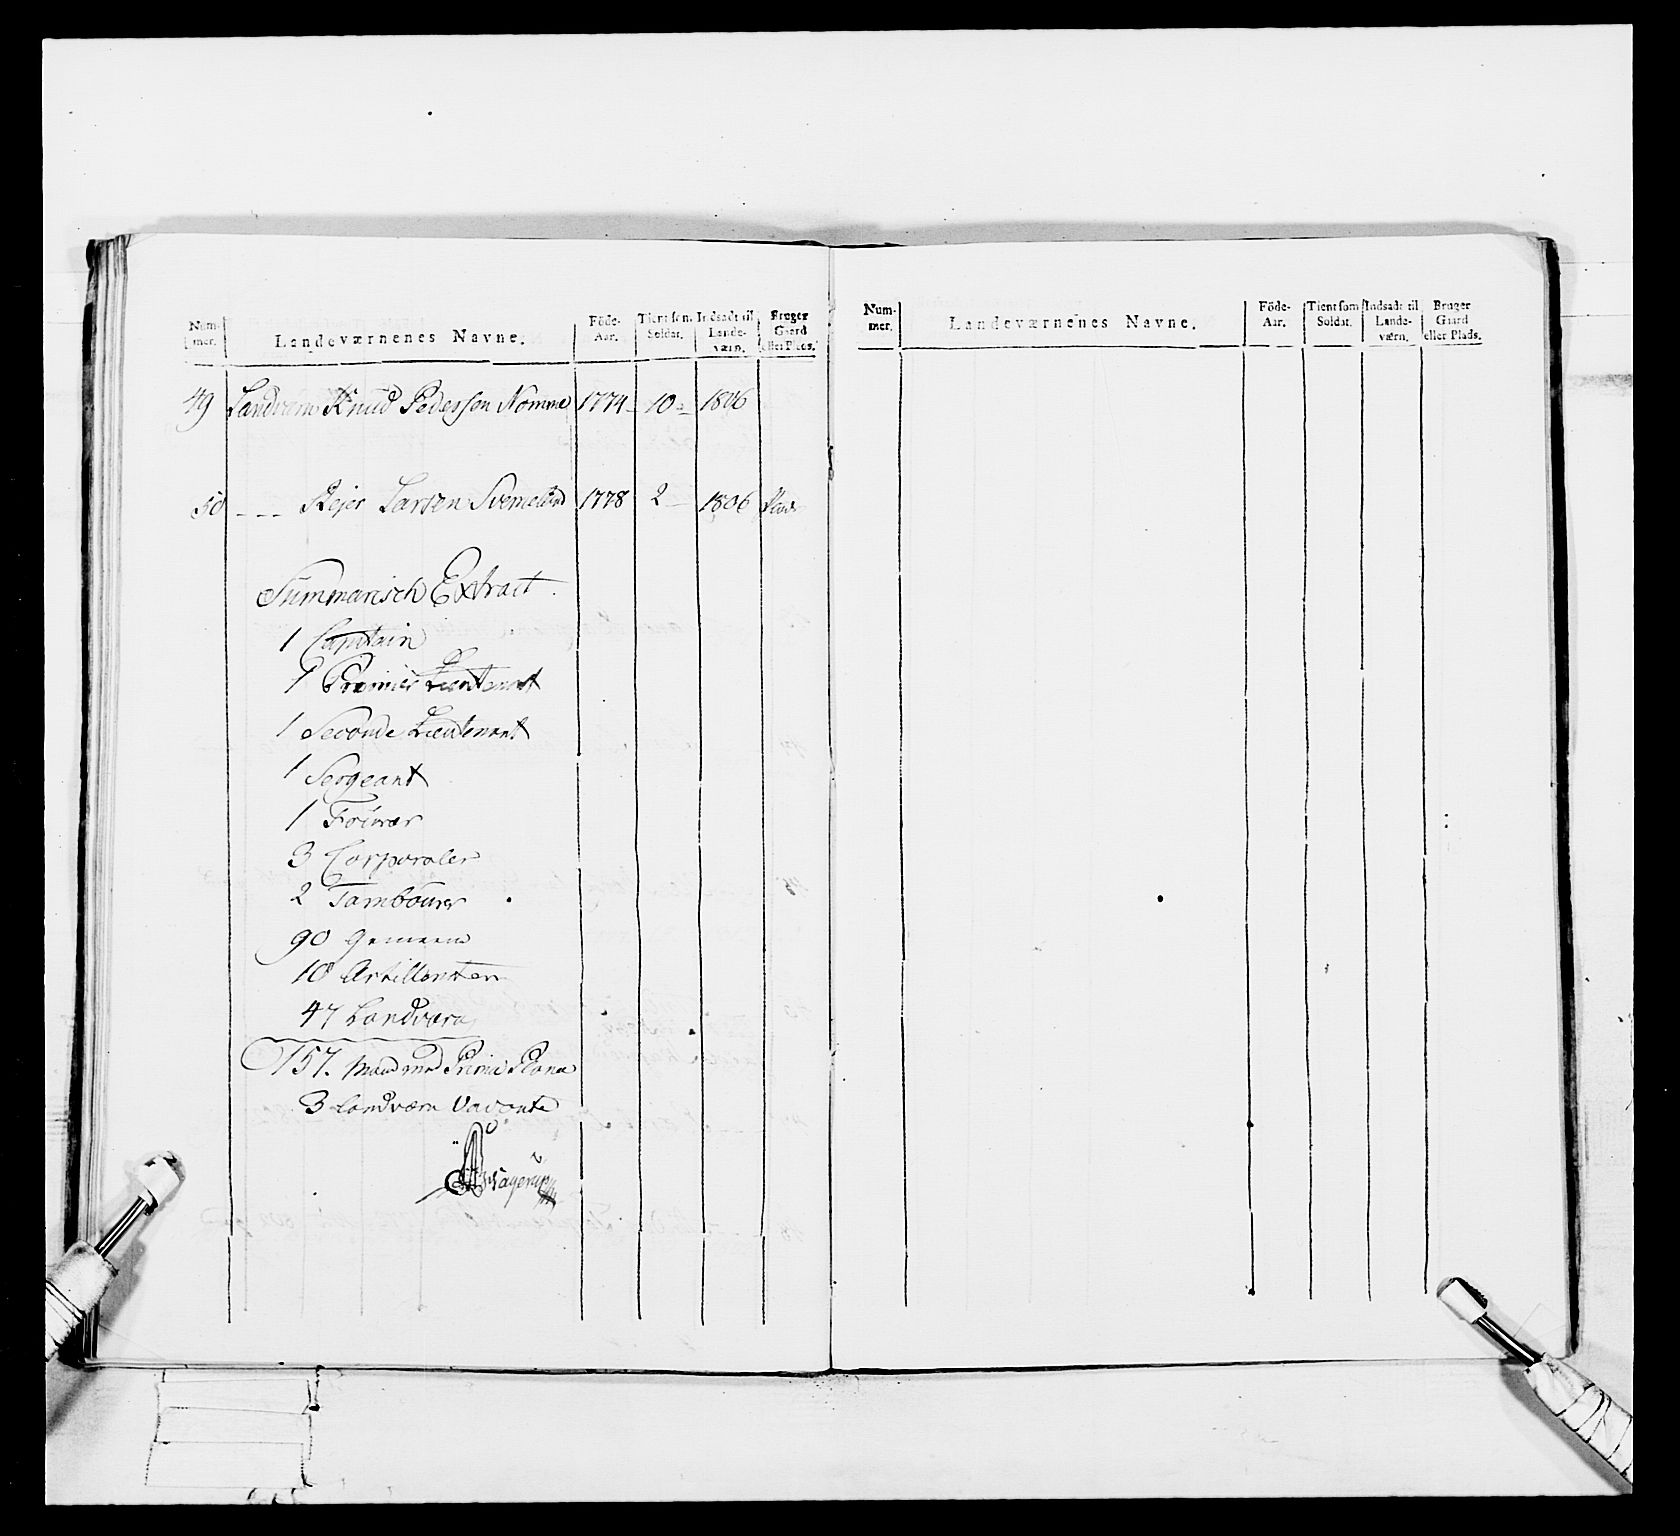 Num- mer. Landeværnenes Navne. Föde- Aar. Tient som Soldat. Indsadt til Lande- værn. Bruger Gaard eller Plads.
49 Landværn Knud Pedersen Nomme 1774 - 10 - 1806
50 - - - Rejer Larsen 1778 2 - 1806 Plads
Summarisch Extract.
1 Capitain
1 Premier Lieutenant
1 Seconde Lieutenant
1 Sergeant
1 Fourer
3 Corporaler
2 Tambourer
90 Gemeene
10 Artillerister
47 Landværn
157. Mand med Prima Plana
3 Landværn Vacante
Num- mer. Landeværnenes Navne. Föde- Aar. Tient som Soldat. Indsadt til Lande- værn. Bruger Gaard eller Plads.